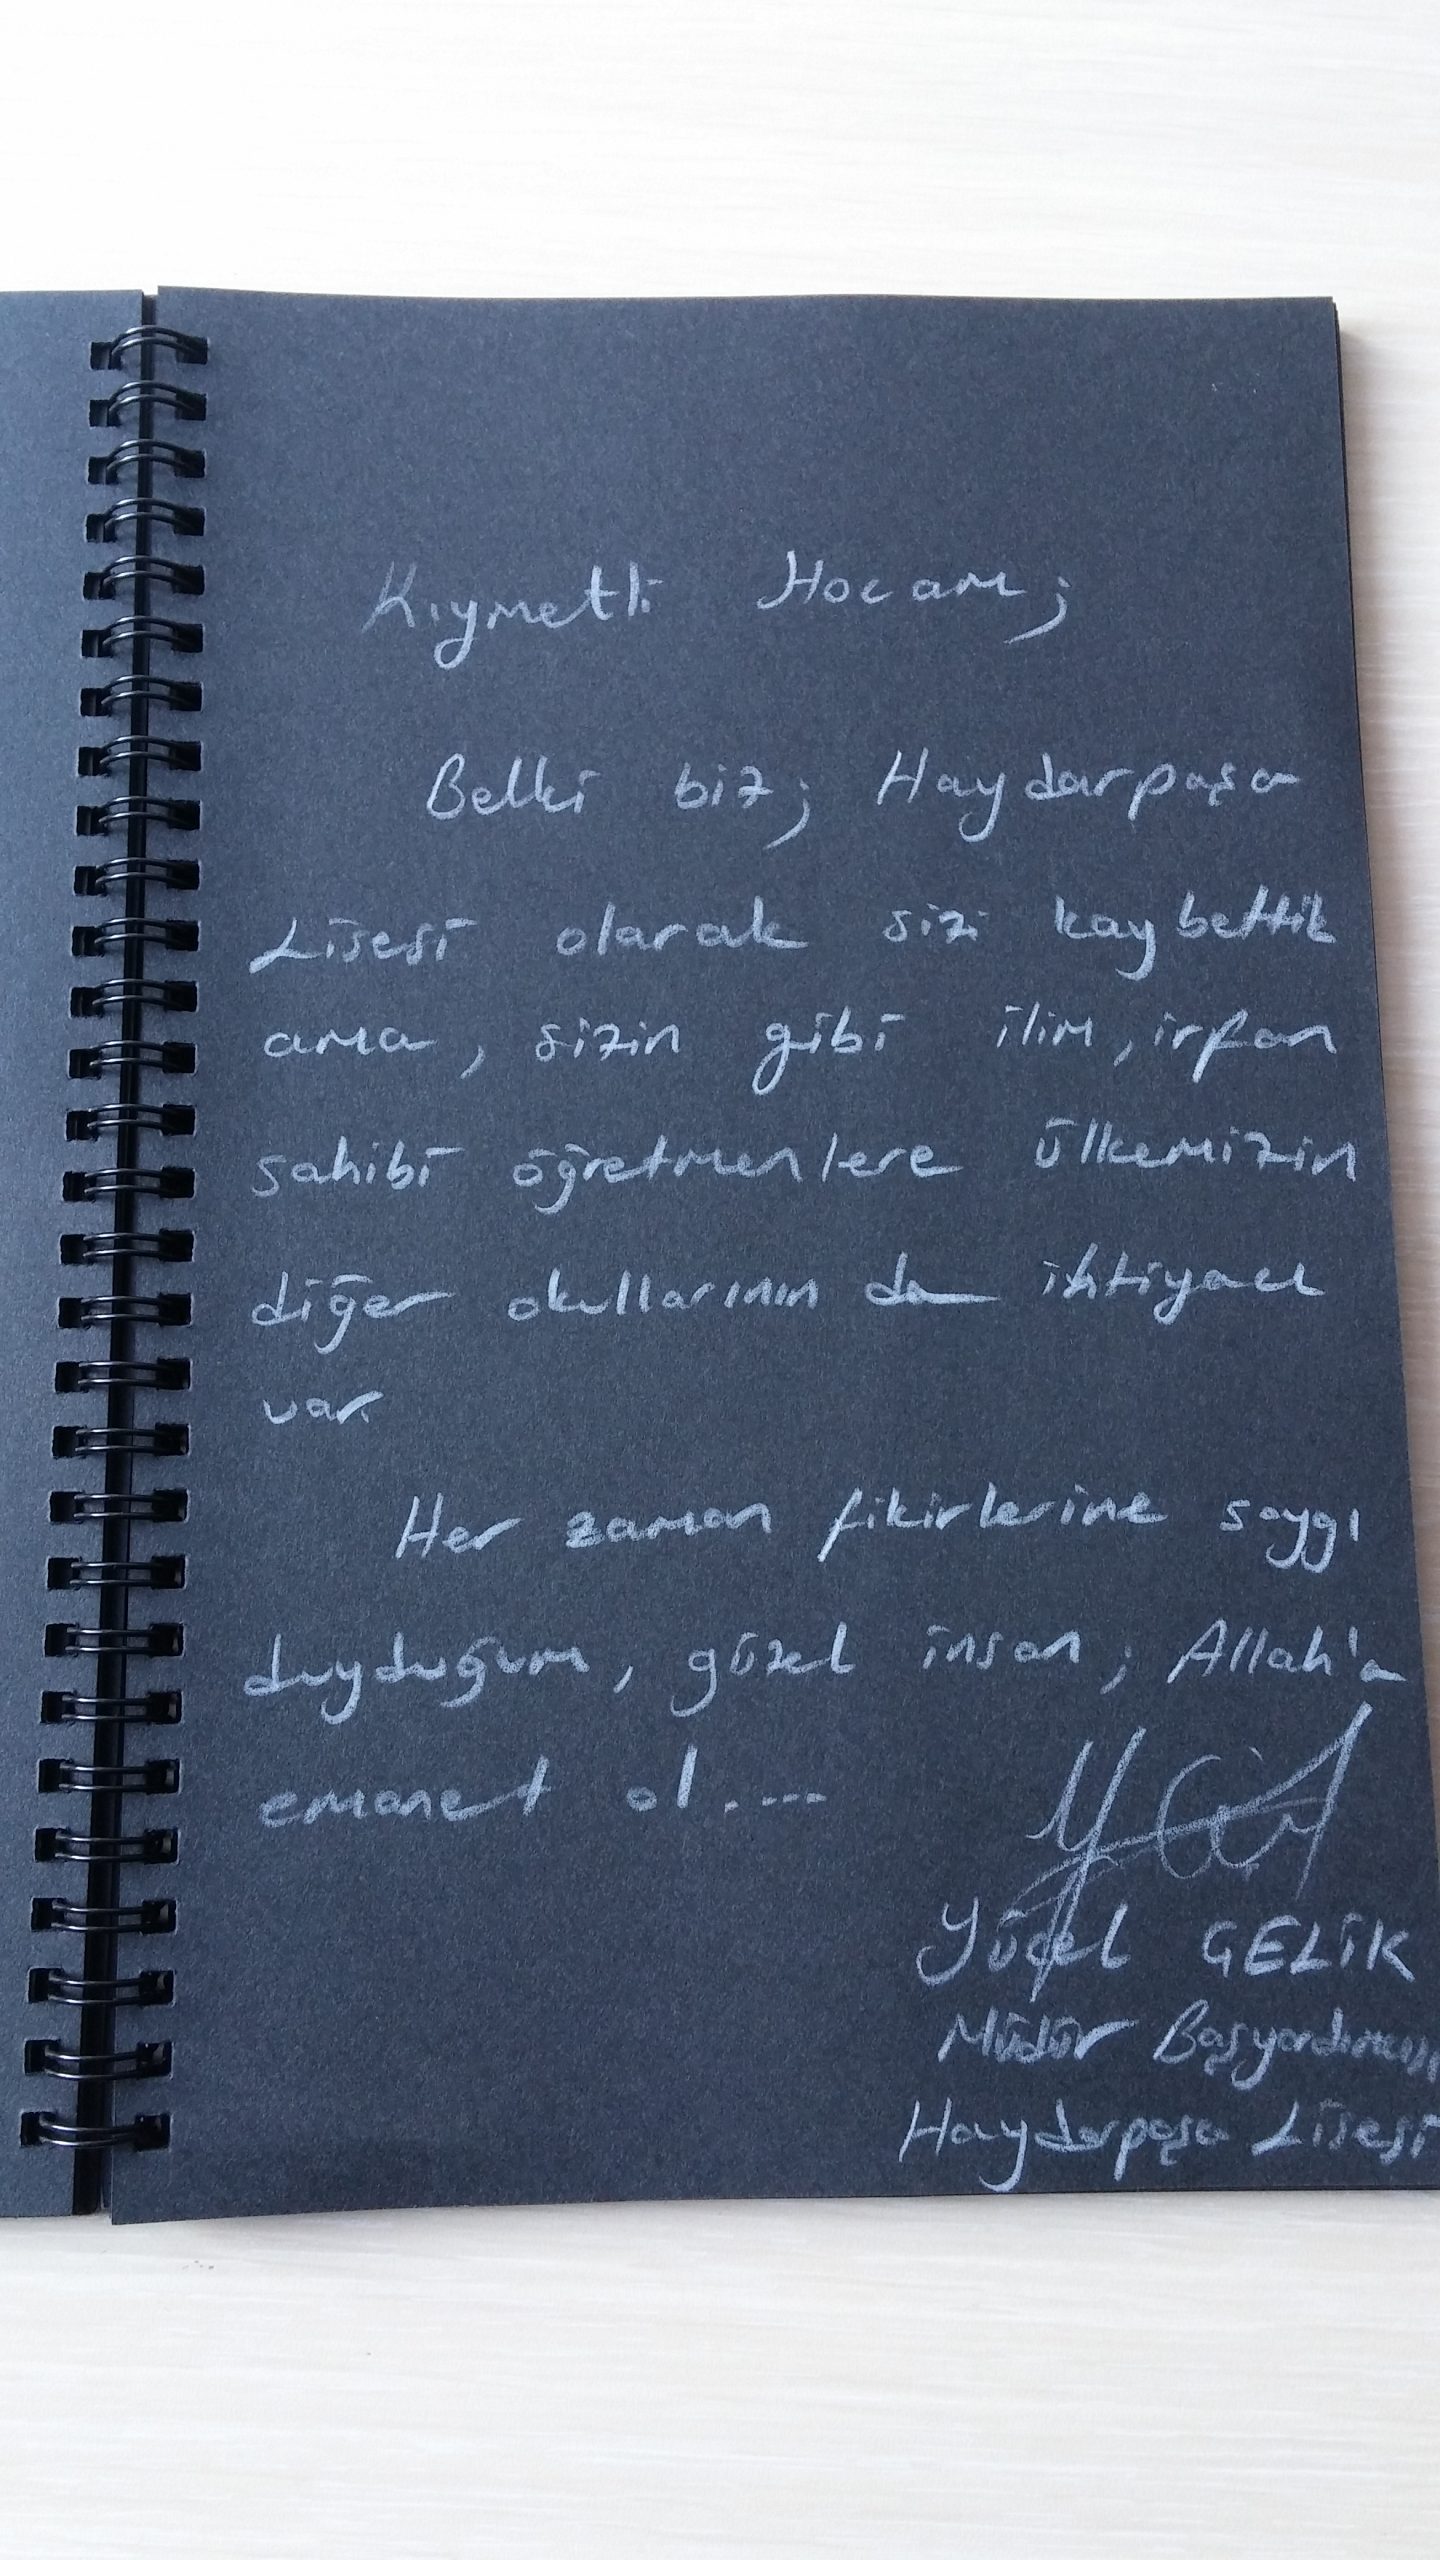 Kıymetli Hocam;
Belki biz; Haydarpaşa
Lisesi olarak sizi kaybettik
ama, sizin gibi ilim, irfan
sahibi öğretmenlere ülkemizin
diğer okullarının da ihtiyacı
var.
Her zaman fikirlerine saygı
duyduğum, güzel insan; Allah'a
emanet ol.....
Yücel ÇELİK
Müdür Başyardımcısı
Haydarpaşa Lisesi